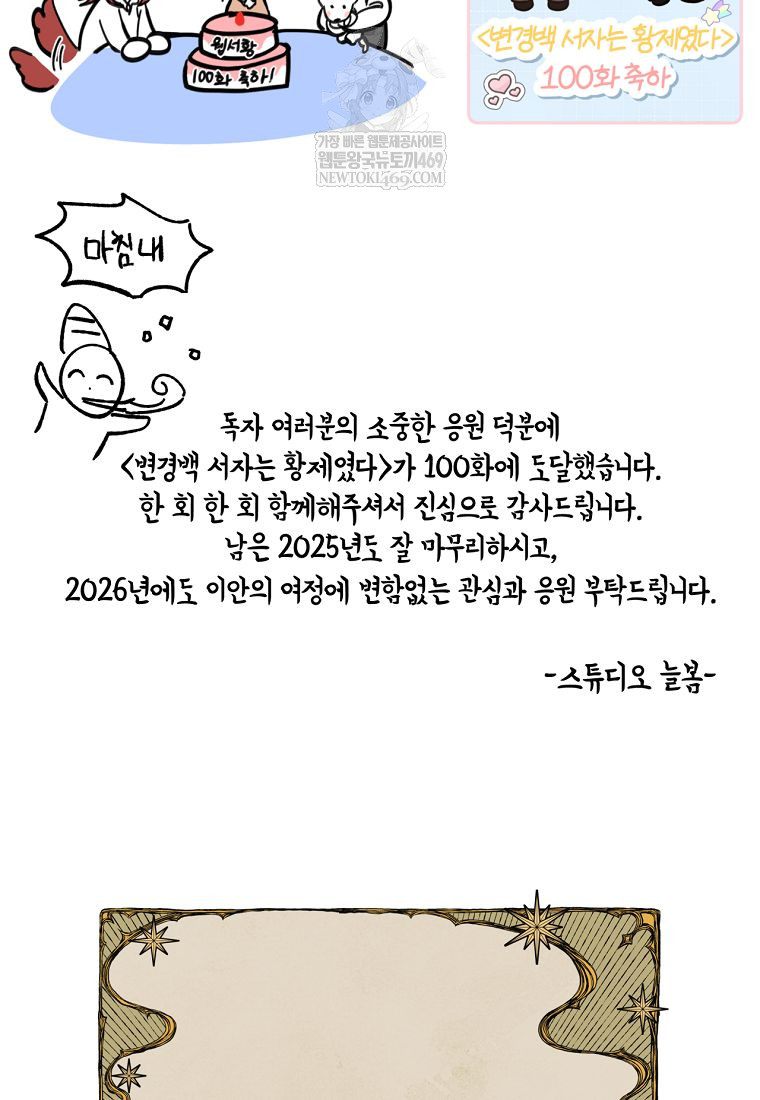 웹서황
100화 축하!
<변경백 서자는 황제였다>
100화 축하
가장 빠른 웹툰제공사이트
웹툰왕국뉴토끼469
NEWTOKI469.COM
마침내
독자 여러분의 소중한 응원 덕분에
<변경백 서자는 황제였다>가 100화에 도달했습니다.
한 회 한 회 함께해주셔서 진심으로 감사드립니다.
남은 2025년도 잘 마무리하시고,
2026년에도 이안의 여정에 변함없는 관심과 응원 부탁드립니다.
-스튜디오 늘봄-